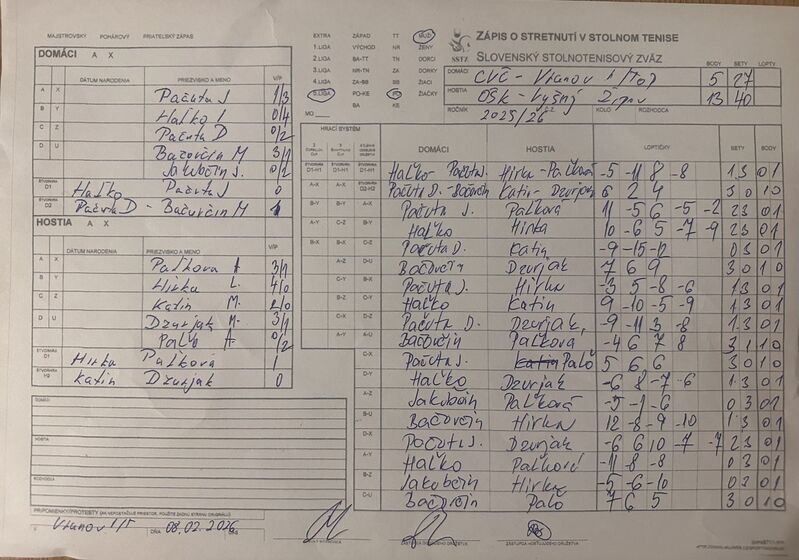 MAJSTROVSKÝ POHÁROVÝ PRIATEĽSKÝ ZÁPAS
DOMÁCI A X
DÁTUM NARODENIA PRIEZVISKO A MENO V/P
A X Pačuta J 1/3
B Y Haľko 0/4
C Z Pačuta D 0/2
D U Bačovčin M 3/1
Jakubčin J. 0/2
ŠTVORHRA D1 Haľko Pačuta J 0
ŠTVORHRA D2 Pačuta D - Bačovčin M 1
HOSTIA A X
DÁTUM NARODENIA PRIEZVISKO A MENO V/P
A X Paľková A 3/1
B Y Hirka L. 4/0
C Z Katin M. 2/0
D U Dzurjak M. 3/1
Palo A 0/2
ŠTVORHRA H1 Hirka Paľková 1
ŠTVORHRA H2 Katin Dzurjak 0
DOMÁCI
HOSTIA
ROZHODCA
PRIPOMIENKY/PROTESTY
Vranov n/T DŇA 08.02.2026
EXTRA ZÁPAD TT MUŽI
1.LIGA VÝCHOD NR ŽENY
2.LIGA BA-TT TN DORCI
3.LIGA NR-TN ZA DORKY
4.LIGA ZA-BB BB ŽIACI
5.LIGA PO-KE PO ŽIAČKY
BA KE
MO
SSTZ
ZÁPIS O STRETNUTÍ V STOLNOM TENISE
SLOVENSKÝ STOLNOTENISOVÝ ZVÄZ
BODY SETY LOPTY
DOMÁCI CVČ - Vranov n/Top 5 27
HOSTIA OŠK - Vyšný Žipov 13 40
ROČNÍK 2025/26 KOLO ROZHODCA
HRACÍ SYSTÉM DOMÁCI HOSTIA LOPTIČKY SETY BODY
D1-H1 D1-H1 Haľko - Pačuta J. Hirka - Paľková -5 -11 8 -8 1 3 0 1
A-X D2-H2 Pačuta D. - Bačovčin Katin - Dzurjak 6 2 4 3 0 1 0
B-Y B-Y A-X Pačuta J. Paľková 11 -5 6 -5 -2 2 3 0 1
A-Y C-Z B-Y Haľko Hirka 10 -6 5 -7 -9 2 3 0 1
B-X B-X C-Z Pačuta D. Katin -9 -15 -12 0 3 0 1
A-Z D-U Bačovčin Dzurjak 7 6 9 3 0 1 0
C-Y B-X Pačuta J. Hirka -3 5 -8 -6 1 3 0 1
B-Z C-Y Haľko Katin 9 -10 -5 -9 1 3 0 1
C-X D-Z Pačuta D. Dzurjak -9 -11 3 -8 1 3 0 1
A-Y A-U Bačovčin Paľková -4 6 7 8 3 1 1 0
C-X Pačuta J. Palo 5 6 6 3 0 1 0
D-Y Haľko Dzurjak -6 8 -7 -6 1 3 0 1
A-Z Jakubčin Paľková -5 -1 -6 0 3 0 1
B-U Bačovčin Hirka 12 -8 -9 -10 1 3 0 1
D-X Pačuta J. Dzurjak -6 6 10 -7 -7 2 3 0 1
A-Y Haľko Paľková -11 -8 -8 0 3 0 1
B-Z Jakubčin Hirka -5 -6 -10 0 3 0 1
C-U Bačovčin Palo 7 6 5 3 0 1 0